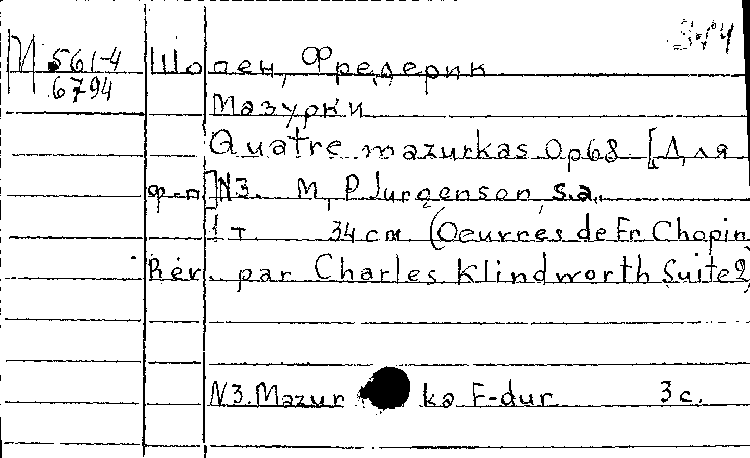 М 561-4
6794
Шопен, Фредерик
Мазурки
Quatre mazurkas Op68 [Для
ф-п] N3. М, P Jurgenson, s.a.
1 т. 34 cm (Oeuvres de Fr Chopin
Rév. par Charles Klindworth Suite 2)
N3. Mazur ka F-dur 3 с.